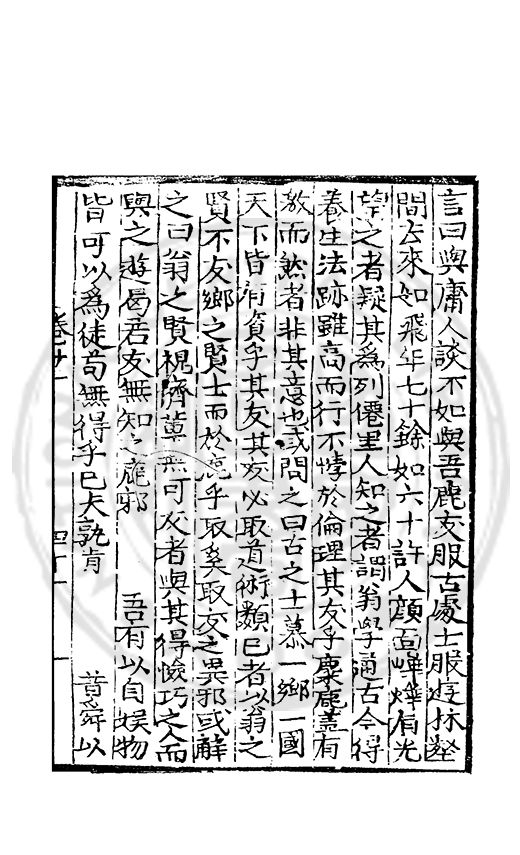 言曰與庸人談不如與吾鹿友服古處士服逰林壑
間去來如飛年七十餘如六十許人顔面㬢爗有光
望之者疑其爲列僊里人知之者謂翁學通古今得
養生法跡雖高而行不悖於倫理其友乎麋鹿盖有
激而然者非其意也或問之曰古之士慕一鄉一國
天下皆有資乎其友其友必取道術類已者以翁之
賢不友鄉之賢士而於鹿乎取奚取友之異邪或解
之曰翁之賢視齊冀無可友者與其得憸巧之人而
與之遊曷若友無知之鹿邪 吾有以自娱物
皆可以爲徒苟無得乎已夫孰肯 昔舜以
卷廿一 四十一